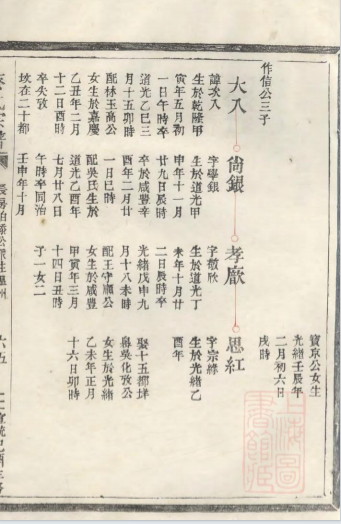 寶京公女生
光緒壬辰年
二月初六日
戌時
作信公三子
大入
諱次入
生於乾隆甲
寅年五月初
一日午時卒
道光乙巳三
月十五卯時
配林玉高公
女生於嘉慶
乙丑年二月
十二日酉時
卒失攷
坟在二十都
尙銀
字學銀
生於道光甲
申年十一月
廿九日辰時
卒於咸豐辛
酉年二月廿
一日巳時
配吳氏生於
道光乙酉年
七月廿八日
午時卒同治
壬申年十月
孝厭
字敬欣
生於道光丁
未年十月廿
二日辰時卒
光緒戊申九
月十八未時
配王守鳳公
女生於咸豐
甲寅年三月
十四日丑時
子一女二
思紅
字宗緣
生於光緒乙
酉年
娶十五都垟
吳化攷公
女生於光緒
乙未年正月
十六日卯時
上海圖
書館
六五